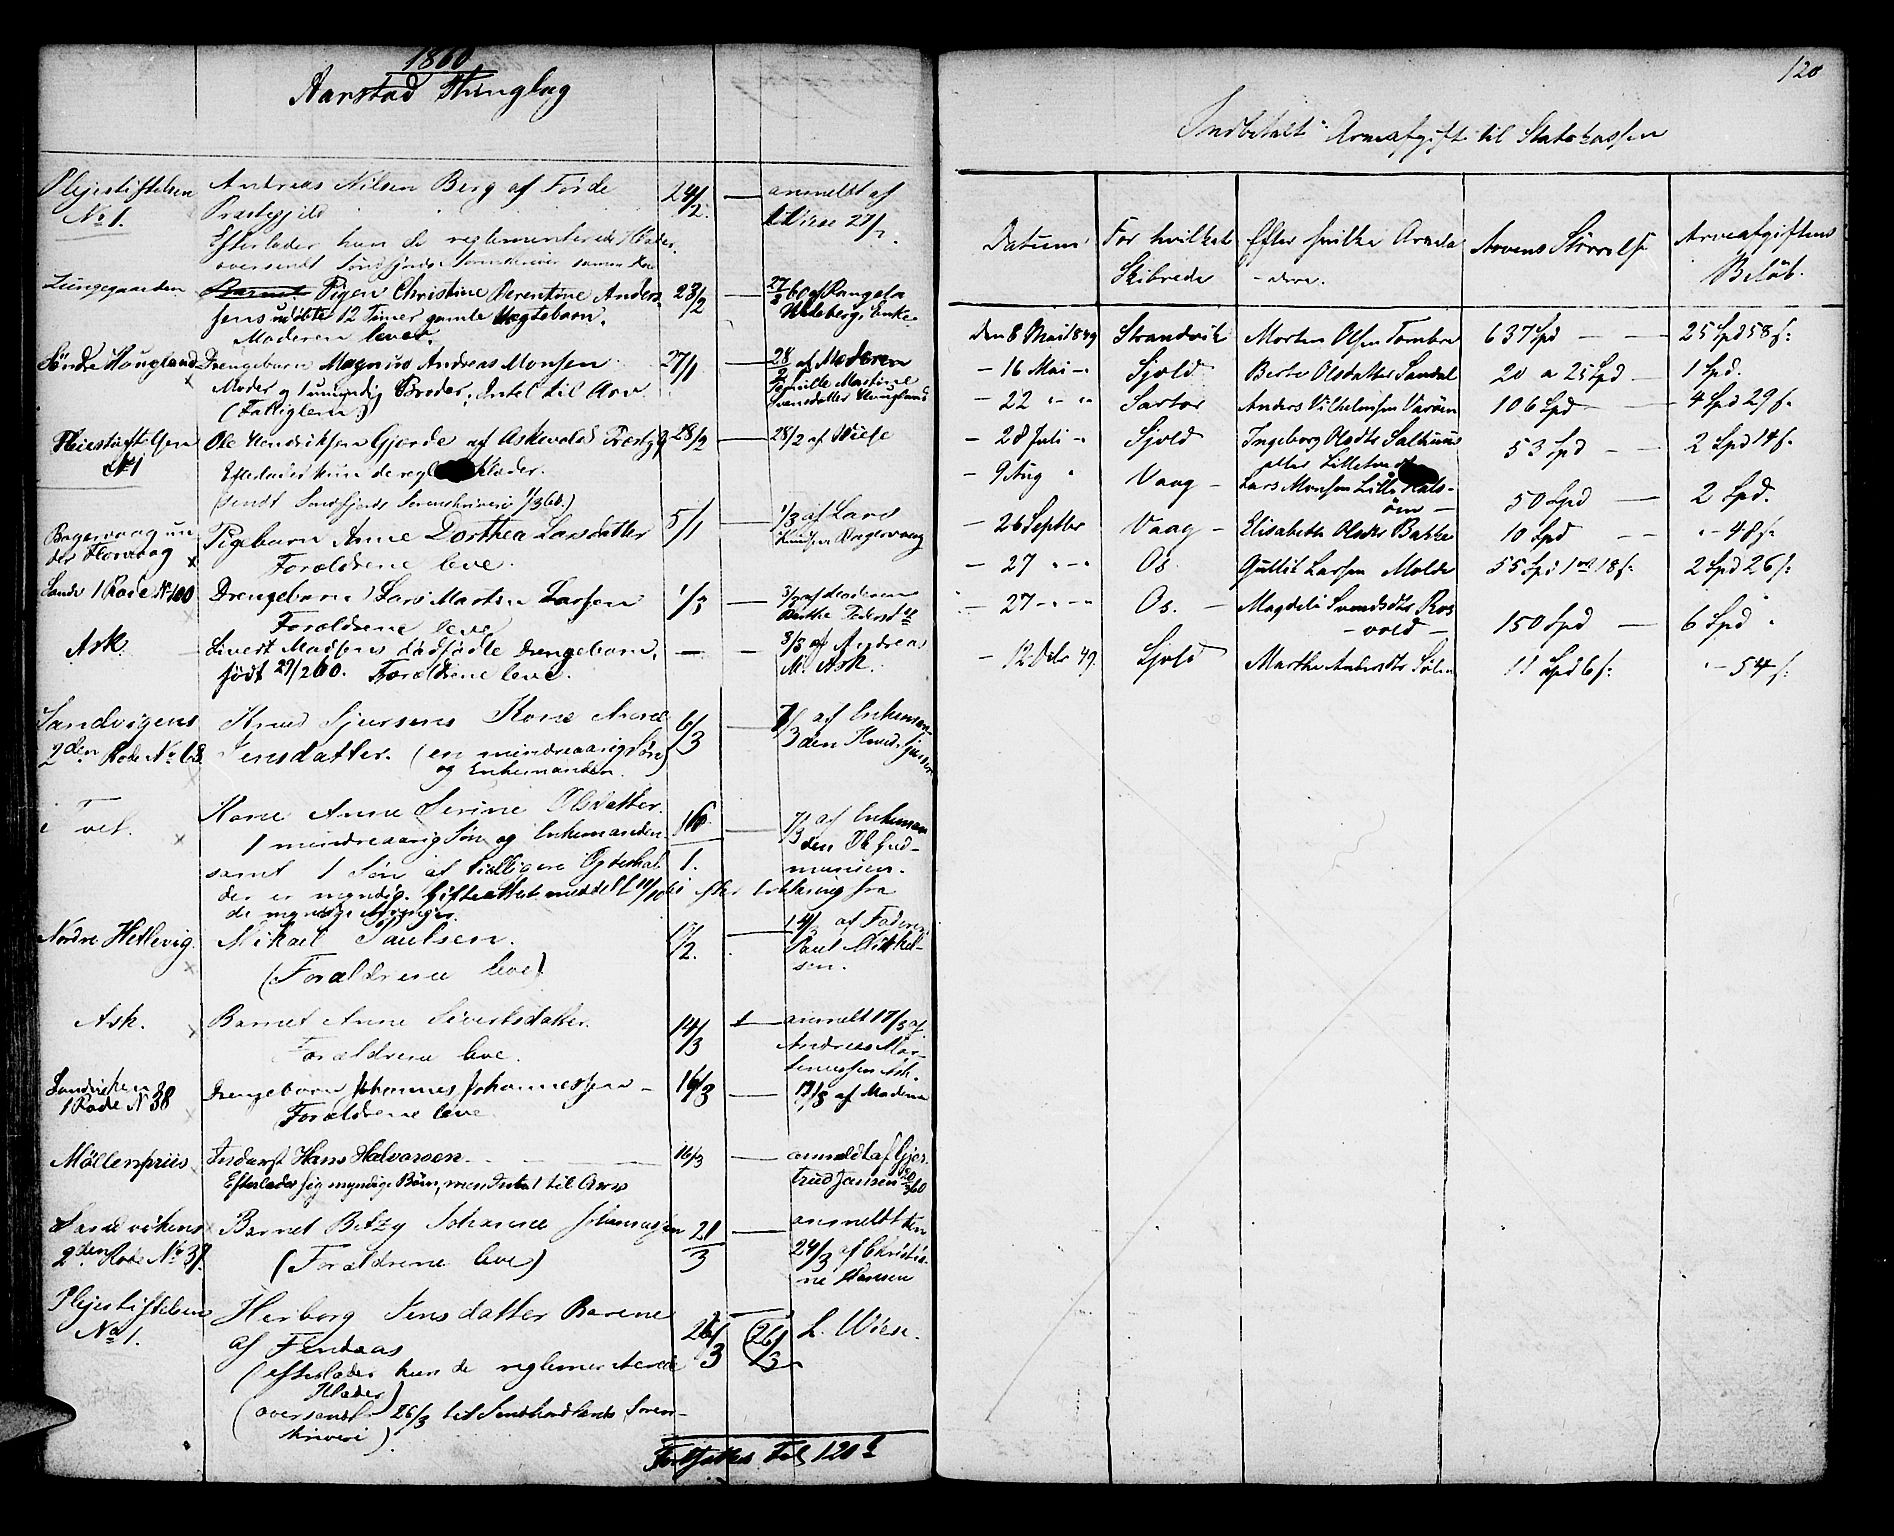 1860
Aarstad Thinglag
Plejestiftelsen Andreas Nilsen Berg af Förde 24/2 — anmeldt af
No 1. Præstegjeld Wiese 27/2.
Efterlader kun de reglementerede Klæder,
oversendt Söndfjords Sorenskriver
Lungegaarden Pigen Christine Berentine Anders 23/2 — 27/2 60 af Rangela
sens udöbte 12 Timer gamle Uægtebarn. Enke.
Moderen lever.
Söndre Hougland Drengebarn Magnus Andreas Monsen 27/1 — 28/2 af Moderen
Moder og 1 umyndig Broder; Intet til Arv. Martine
(Fattiglem) Svensdatter Hougland
Pleiestiftelsen Ole Hendriksen Gjerde af Askevold Præstgj 28/2 — 28/2 af Wiese
No 1 Efterlader kun de regl Klæder.
(sendt Söndfjords Sorenskriveri 1/3 60.)
Bagervaag un Pigebarn Anne Dorthea Larsdatter 5/1 — 1/3 af Lars
der Florvaag Forældrene leve. Hagervaag
1 Rode No 100 Drengebarn Lars Martin Larsen 1/3 — 3/3 af Moderen
Forældrene leve Pedersd
Ask Sivert Madsens dødfødte Drengebarn. — — 3/3 af Andreas
født 29/2 60. Forældrene leve. M. Ask.
Sandvigens Knud Sjursens Kone Anne 6/3 — 7/3 af Enkeman
2den Rode No 68 Jensdatter. (en mindreaarig Søn) den Knud Sjursen
og Enkemanden.
Tvet. Kone Anne Serine Olsdatter. 16/1. — 7/3 af Enkeman
1 mindreaarig Søn og Enkemanden den Ole Gud-
samt 1 Søn af tidligere Ægteskab mundsen.
der er myndig. Skifteattest meddelt efter Erklæring fra
de myndige Arvinger.
Nordre Hetlevig. Mikael Paulsen. 17/2. — 14/3 af Faderen
(Forældrene leve) Paul Mikkel-
sen.
Ask. Barnet Anne Sivertsdatter. 14/3 — anmelt 17/3 af
Forældrene leve. Andreas Mor-
tensen Ask.
Sandviken Drengebarn Johannes Johannessen — 16/3 — 19/3 af Moderen
1 Rode N 38 Forældrene leve.
Möllenpriis Inderst Hans Halvorsen 16/3 — anmeldt af Gjer
Efterlader sig myndige Börn, men Intet til Arv trud Jansen
Sandvikens Barnet Betzy Johanne Johannesen 21/3 — anmeldt den
2den Rode No 37. (Forældrene leve) 24/3 af Christia-
ne Hansen
Plejestiftelsen Herborg Jensdatter Barene 26/3 26/3 L. Wiese.
No 1. af Findaas
(efterlader kun de reglementerede
Klæder)
(oversendt 26/3 til Søndhordlands Soren-
skriveri).
Fortsættes Fol 120
120
Indbetalt Arveafgift til Statskassen
Datum For hvilket Efter hvilke Arvela Arvens Størrelse Arveafgiftens
Skibrede - dere. Beløb.
den 8 Mai 1849 Strandvik Morten Olsen Tombre 637 Spd — 25 Spd 58 s:
- 16 Mai - Sjold Berte Olsdatter Sandal 20 a 25 Spd — 1 Spd.
- 22 - - Sartor Anders Vilhelmsen Varöen 106 Spd — 4 Spd 29 s.
- 28 Juli - Sjold Ingeborg Olsdtr 53 Spd — 2 Spd 14 s.
- 9 Aug - Vaag - Lars Monsen Lille Kals-
öen - 50 Spd — 2 Spd.
- 26 Septbr Vaag - Elisabeth Olsdtr Bakke 10 Spd — - 48 s.
- 27 - - Os. Gullik Larsen Molde 55 Spd 1 ort 18 s. 2 Spd 26 s.
- 27 - - Os. - Magdeli Svendsdtr Ros
- vold - 150 Spd — 6 Spd
- 12 Octbr 49. Sjold Marthe Andersdtr Sølen 11 Spd 6 s: - 54 s: